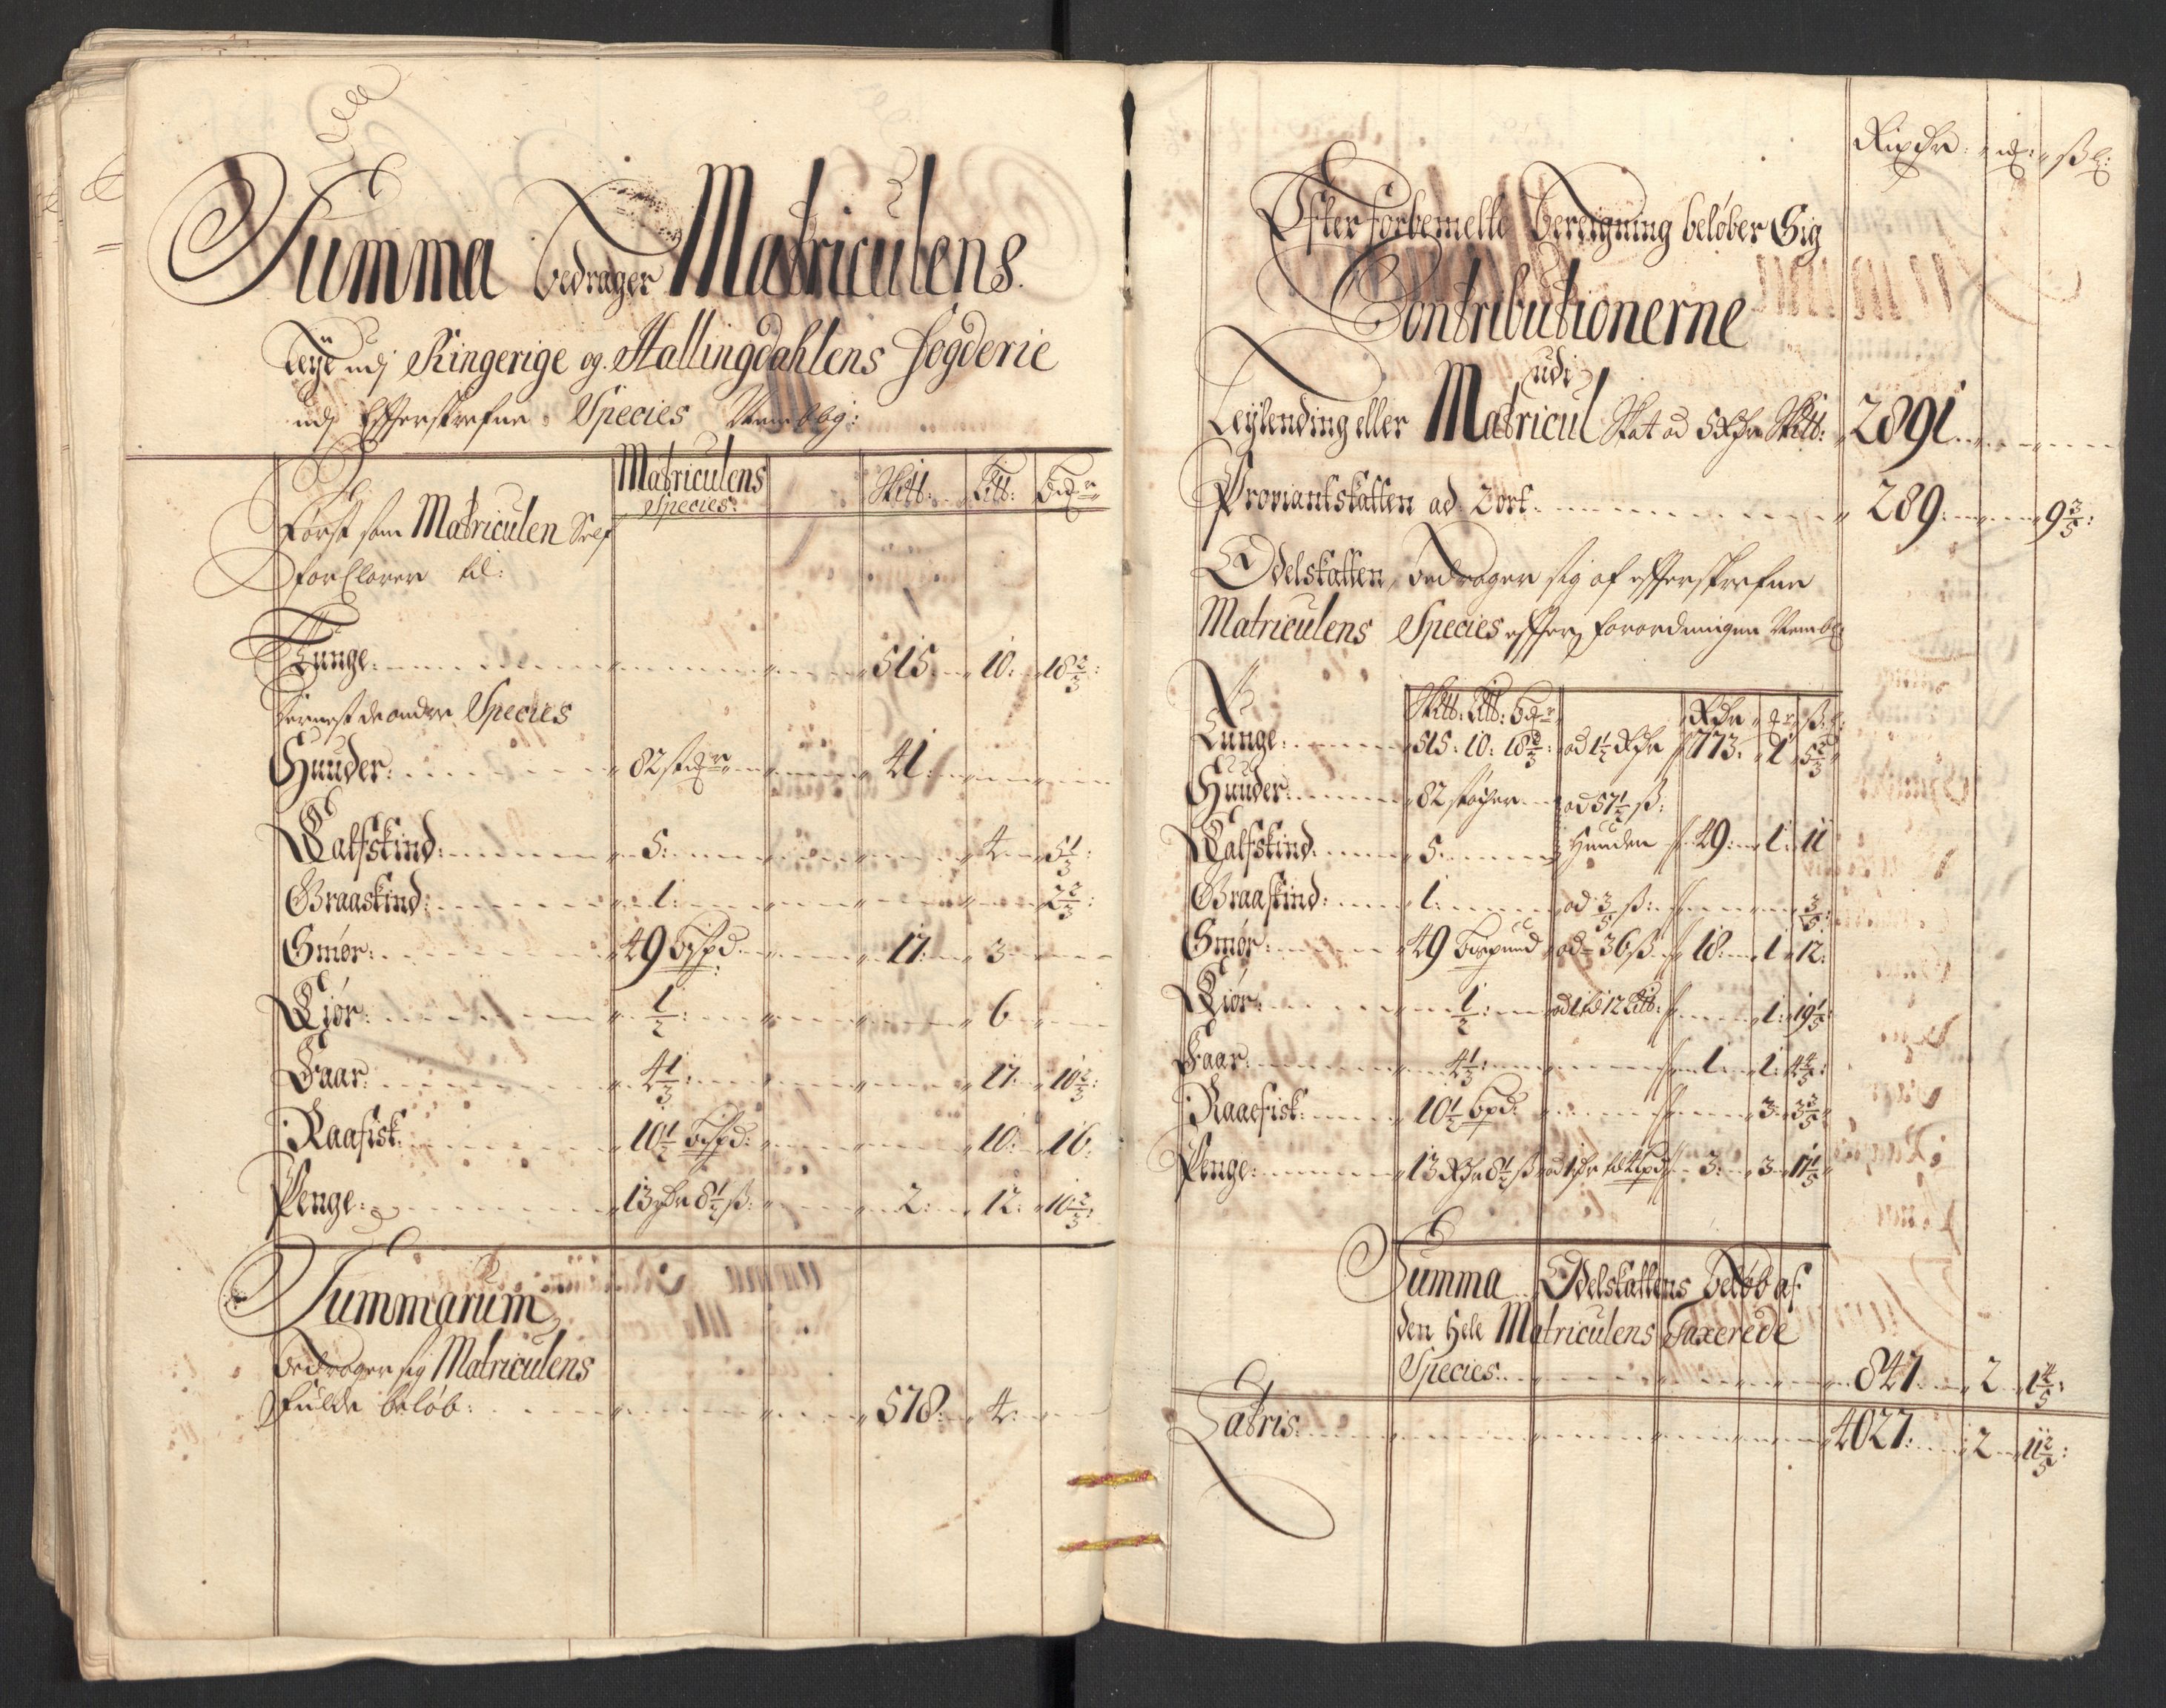 Summa bedrager Matriculens
Leÿe udj Ringerige og Hallingdahlens fogderie
udj Efterskrefne Species Nembl:
Matriculens
Species:
Skpd: Lispd: Bpd
Først som Matriculen Self
forClarer til:
Tunge: 515. 10: 18 2/3:
Dernest de andre Species
Huuder: 82 støcher 41:
Calfskind: 5: 4 5 1/3:
Graaskind: 1: 2 2/3:
Smør: 49 Bispd: 17: 3
Kiør: 1/2: 6
Faar: 4 1/3: 17. 10 2/3:
Raafisk: 10 1/2 Bispd: 10: 16:
Penge: 13 Rdr 8 1/2 ß: 2: 12: 10 2/3:
Summarum
Bedrager sig Matriculens
fulde beløb: 578: 4:
Rixdr: ß:
Efter forbemelte Beregning beløber Sig
Contributionerne
udi
Leÿlending eller Matricul Skat ad 5 Rdr Skpd: 2891
Proviantskatten ad 2 ort 289: 9 3/5:
Odelskatten, bedrager sig af efterskrefne
Matriculens Species efter forordningen Nembl:
Skpd: Lispd: Bpd Rdr ß:
Tunge: 515: 10: 18 2/3: ad 1 1/2 Rdr 773: 1 5 2/3
Huuder: 82 støcher ad 57 1/2 ß:
Calfskind: 5: Huuden 49: 1: 11
Graaskind: 1: ad 3/5 ß: 3/5:
Smør: 49 Bispund ad 36 ß 18: 1 12:
Kiør: 1/2: ad 1 til 12 Lispd: 1: 19 1/5:
Faar: 4 1/3: 1 1: 4 4/5:
Raaefisk: 10 1/2 Bpd: 3 3 3/5
Penge: 13 Rdr 8 1/2 ß ad 1 dr til 4 spd 3: 3 17 1/5
Summa Odelskattens Beløb af
den Hele Matriculens Taxerede
Species: 847 2 1 4/5:
Latris: 4027: 2 11 2/5: